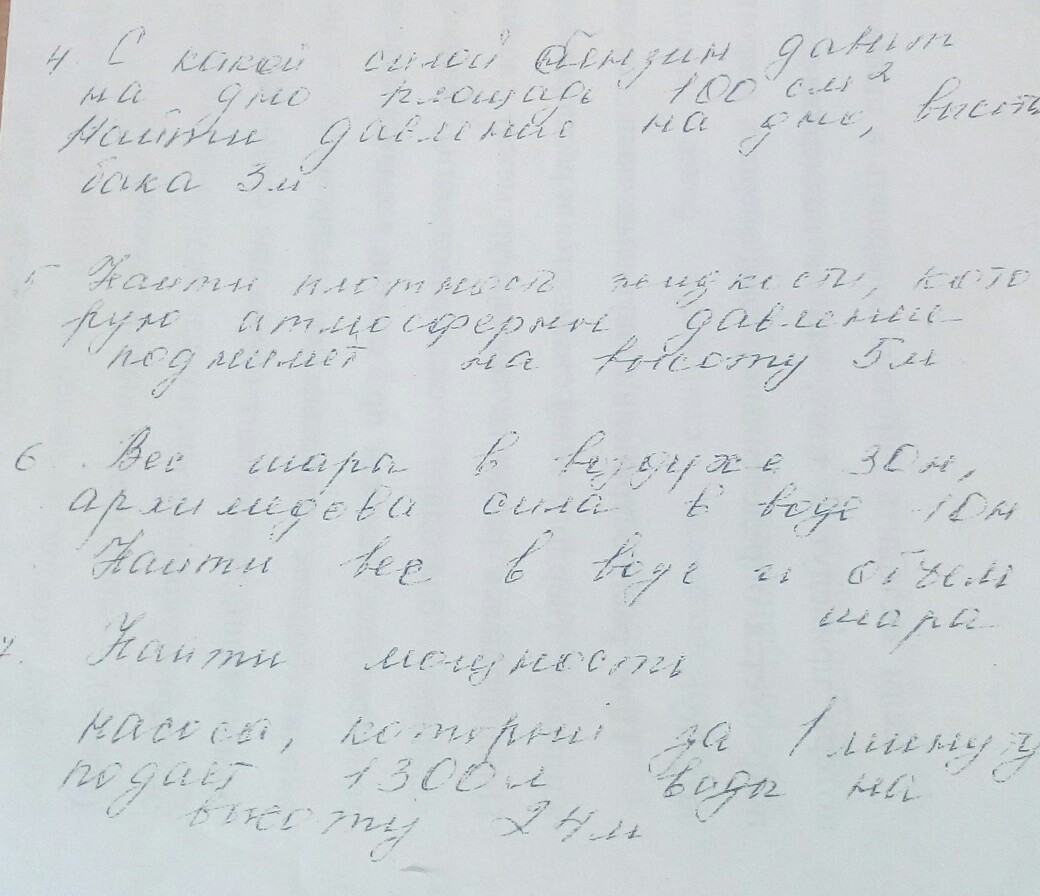 4 С какой силой бензин давит
на дно площадь 100 см²
Найти давление на дно, высота
бака 3м
5 Найти плотность жидкости, кото
рую атмосферны давление
поднимет на высоту 5м
6. Вес шара в воздухе 30н,
архимедова сила в воде 10н
Найти вес в воде и объем
шара
7. Найти мощность
насоса, который за 1 минуту
подает 1300л воды на
высоту 24м